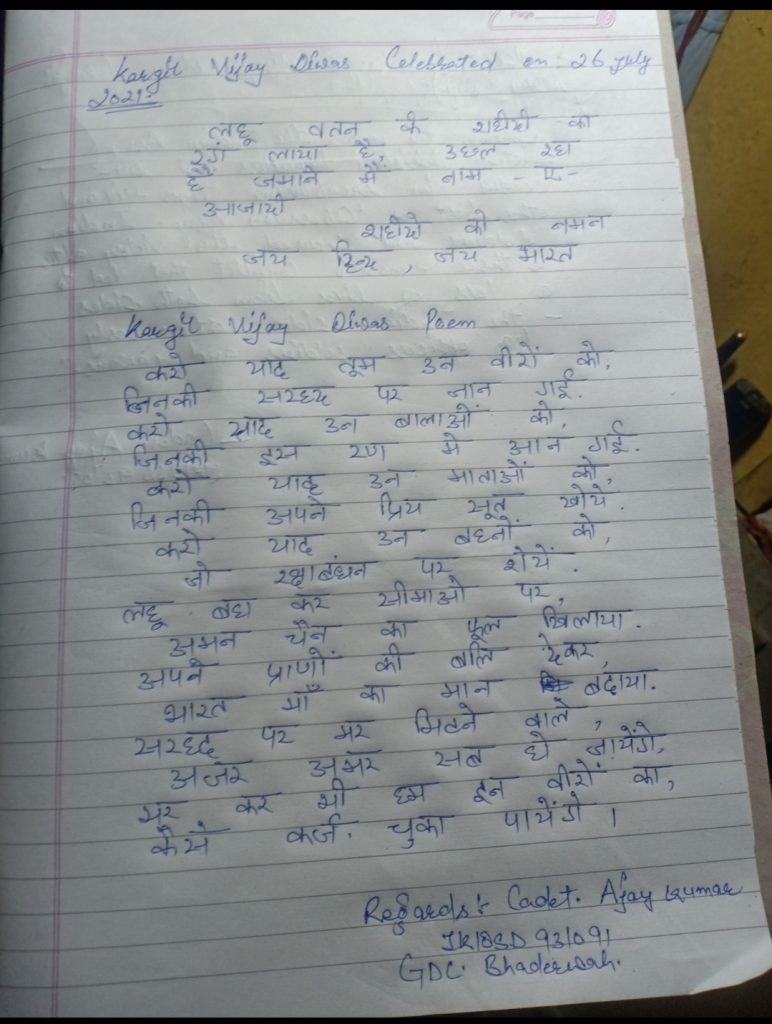 Page
Kargil Vijay Diwas Celebrated on 26 July
2021:-
लहू वतन के शहीदो का
रंग लाया है, उछल रहा
है जमाने में नाम -ए-
आजादी
शहीदो को नमन
जय हिन्द, जय भारत
Kargil Vijay Diwas Poem
करो याद तुम उन वीरों को,
जिनकी सरहद पर जान गई.
करो याद उन बालाओं को,
जिनकी इस रण मे आन गई.
करो याद उन माताओं को,
जिनकी अपने प्रिय सूत खोये.
करो याद उन बहनों को,
जो रक्षाबंधन पर रोयें.
लहू बहा कर सीमाओ पर,
अमन चैन का फूल खिलाया.
अपने प्राणों की बलि देकर,
भारत माँ का मान बढाया.
सरहद पर मर मिटने वाले,
अजर अमर सब हो जायेंगे,
मर कर भी हम इन वीरों का,
कैसे कर्ज. चुका पायेंगे।
Regards:- Cadet. Ajay Kumar
931091
GDC. Bhaderwah.